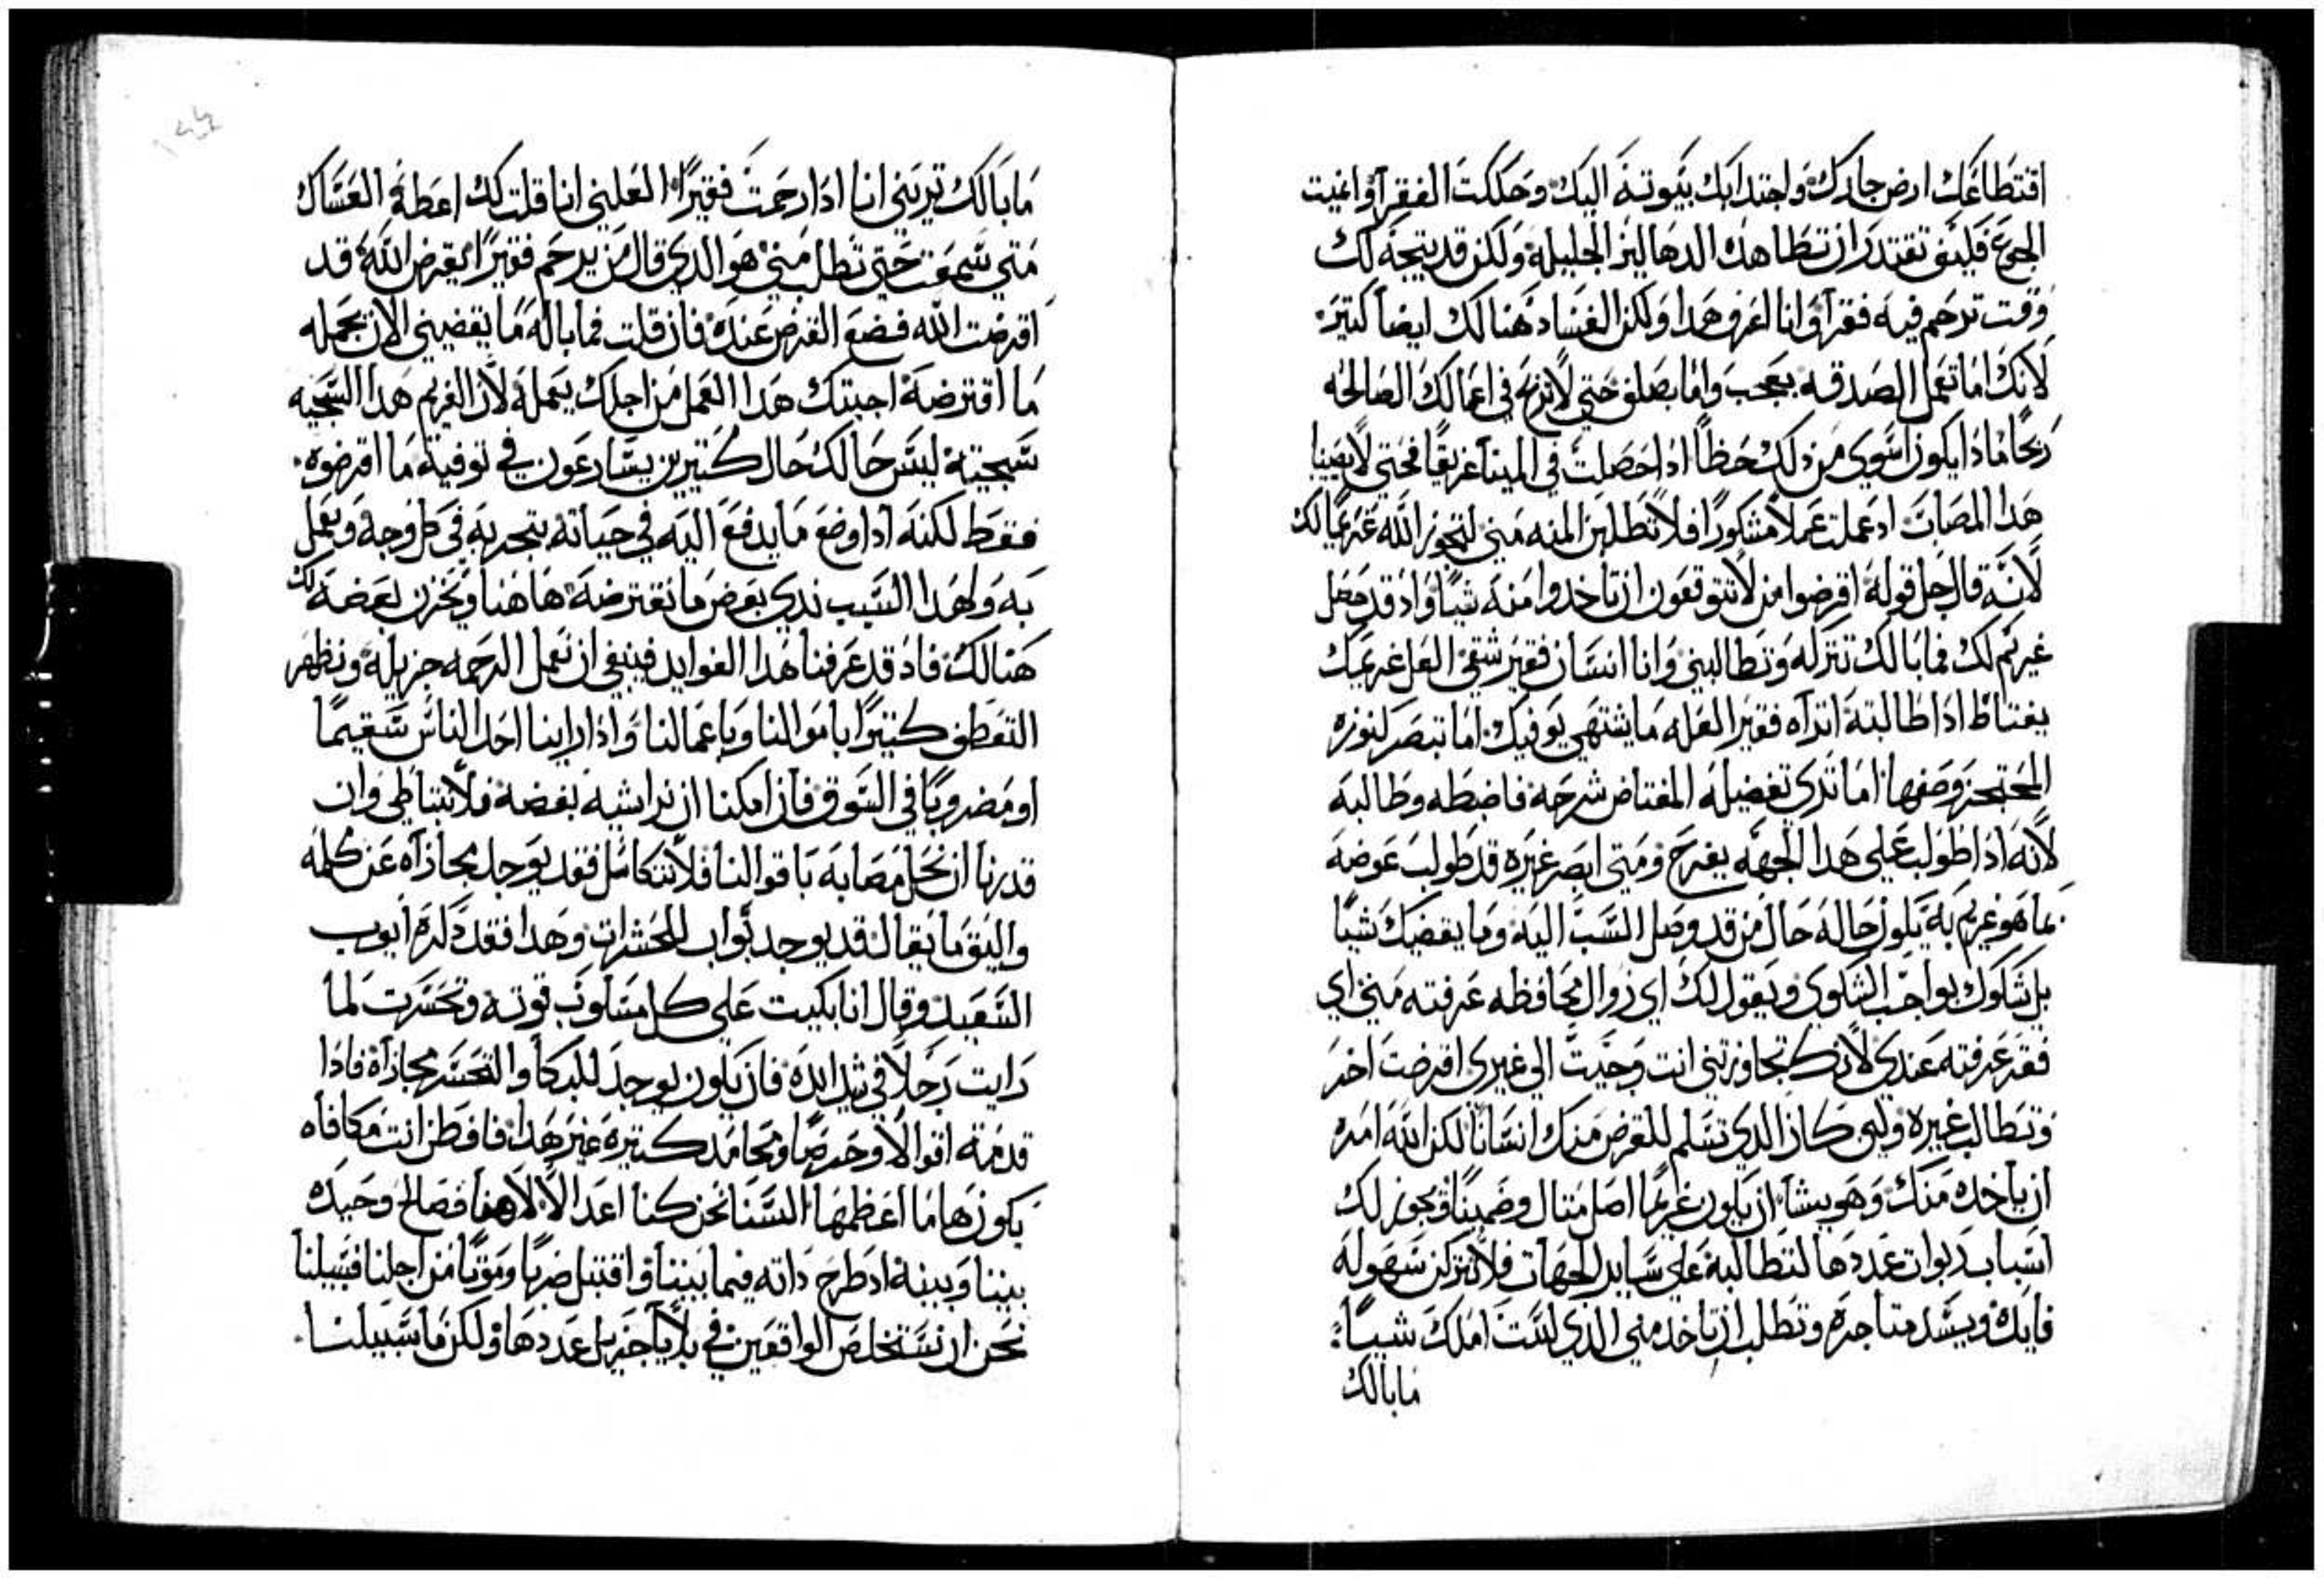 اقتطاعك ارض جارك واجتدابك بيوته اليك وحككت الفقرآ وانميت
الجوع فليف تقتدر ان تتطا هده الدهاليز الجليله ولكن قد يتجه لك
وقت ترحم فيه فقرآ وانا اعرف هدا ولكن الفساد هنالك ايضاً كتير
لانك اما تعمل الصدقه بعجب واما بصلف حتي لا تربح في اعمالك الصالحه
ربحاً مادا يكون اسوي من دلك حظاً ادا حصلت في المينا غريقاً فحتي لا يصيبنا
هدا المصاب اد عملت عملاً مشكوراً فلا تطلبن المنه مني لتحوز الله غريماً لك
لانه قال جل قوله اقرضوا من لا تتوقعون ان تاخدوا منه شياً واد قد جعل
غريم لك فما بالك تتركه وتطالبني وانا انسان فقير شقي العل غريمك
يغتاظ ادا طالبته اتراه فقير العله ما يشتهي يوفيك اما تبصر كنوزه
المحتجز وصفها اما تري تفضيله المفتاض شرحه فاضبطه وطالبه
لانه ادا طولب علي هدا الجهه يفرح ومتي ابصر غيره قد طولب عوضه
بما هو غريم به يكون حاله حال من قد وصل السب اليه وما يقضيك شياً
بل شكوك بواجب الشكوي ويقول لك اي زوال محافظه عرفته مني اي
فقر عرفته عندي لانك تجاوزتني انت وجيت الي غيري اقرضت اخر
وتطالب غيره ولين كان الدي تسلم للقرض منك انساناً لكن الله امره
ان ياخده منك وهو يشا ان يكون غريماً اصل متال وضميناً ويجوز لك
اسباب ربوات عددها لتطالبه علي ساير الجهات فلا تتركن سهوله
فايده ويسد متاجره وتطلب ان تاخد مني الدي لست املك شياً
مابالك
ما بالك تريني انا ادا رحمت فقيراً العلني انا قلت لك اعطه العساك
متي سمعت حتي تطلب مني هو الدي قال من يرحم فقيراً يقرض الله قد
اقرضت الله فضع القرض عنده فان قلت فما باله ما يقضيني الان بجمله
ما اقترضه اجبتك هدا العمل من اجلك يعمله لان الغريم هدا السجيه
سجيته ليس حالك حال كتيرين يسارعون في توفية ما اقترضوه
فقط لكنه ادا وضع ما يدفع اليه في حياته يتجر به في كل وجه ويعمل
به ولهدا السبب تري بعض ما تقترضه هاهنا وتخزن بعضه لك
هنالك فاد قد عرفنا هدا الفوايد فينبغي ان نعمل الرحمه جزيله ونظهر
التعطف كتيراً باموالنا وباعمالنا وادا راينا احل الناس سقيماً
او مضروباً في السوق فان امكنا ان نرا شيه بفضه فلا نتباطي وان
قدرنا ان نحل مصابه باقوالنا فلا نتكاسل فقد يوجد مجازآه عن كلمه
واليق ما يقال قد يوجد تواب للحشرات وهدا فقد دكره ايوب
السعيد وقال انا بكيت علي كل مسلوب قوته وتحسرت لما
رايت رجلاً في شدايده فان يكون يوجد للبكا والتحسر مجازآة فادا
قدمته اقوالاً وحرصاً ومحامد كتيره غير هدا فافطن انت مكافاه
يكون هاما اعظمها السنا نحن كنا اعدا الالاهنا فصالح وحيده
بيننا وبينه اد طرح داته فيما بيننا واقتبل ضرباً وموتاً من اجلنا فسبيلنا
نحن ان نستخلص الواقعين في بلايا جزيل عددها ولكن ما سبيلنا